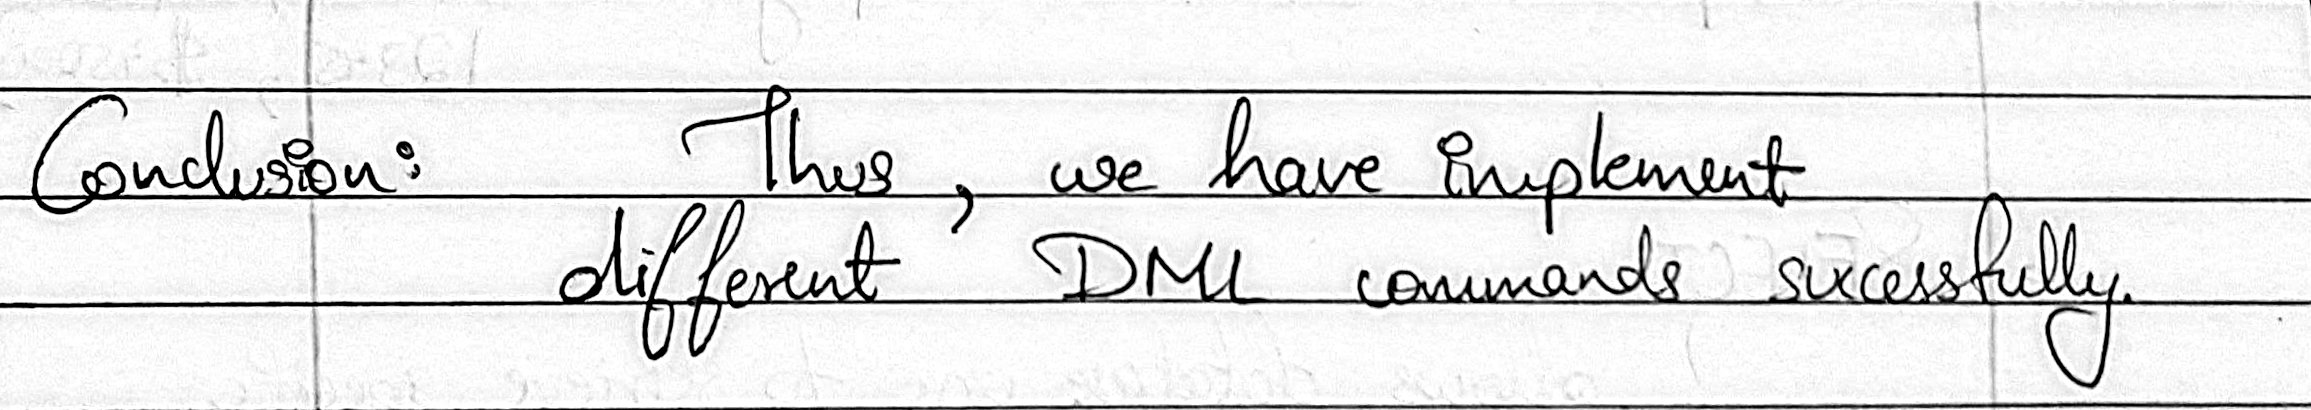 Conclusion: Thus, we have implement
different DML commands sucessfully.